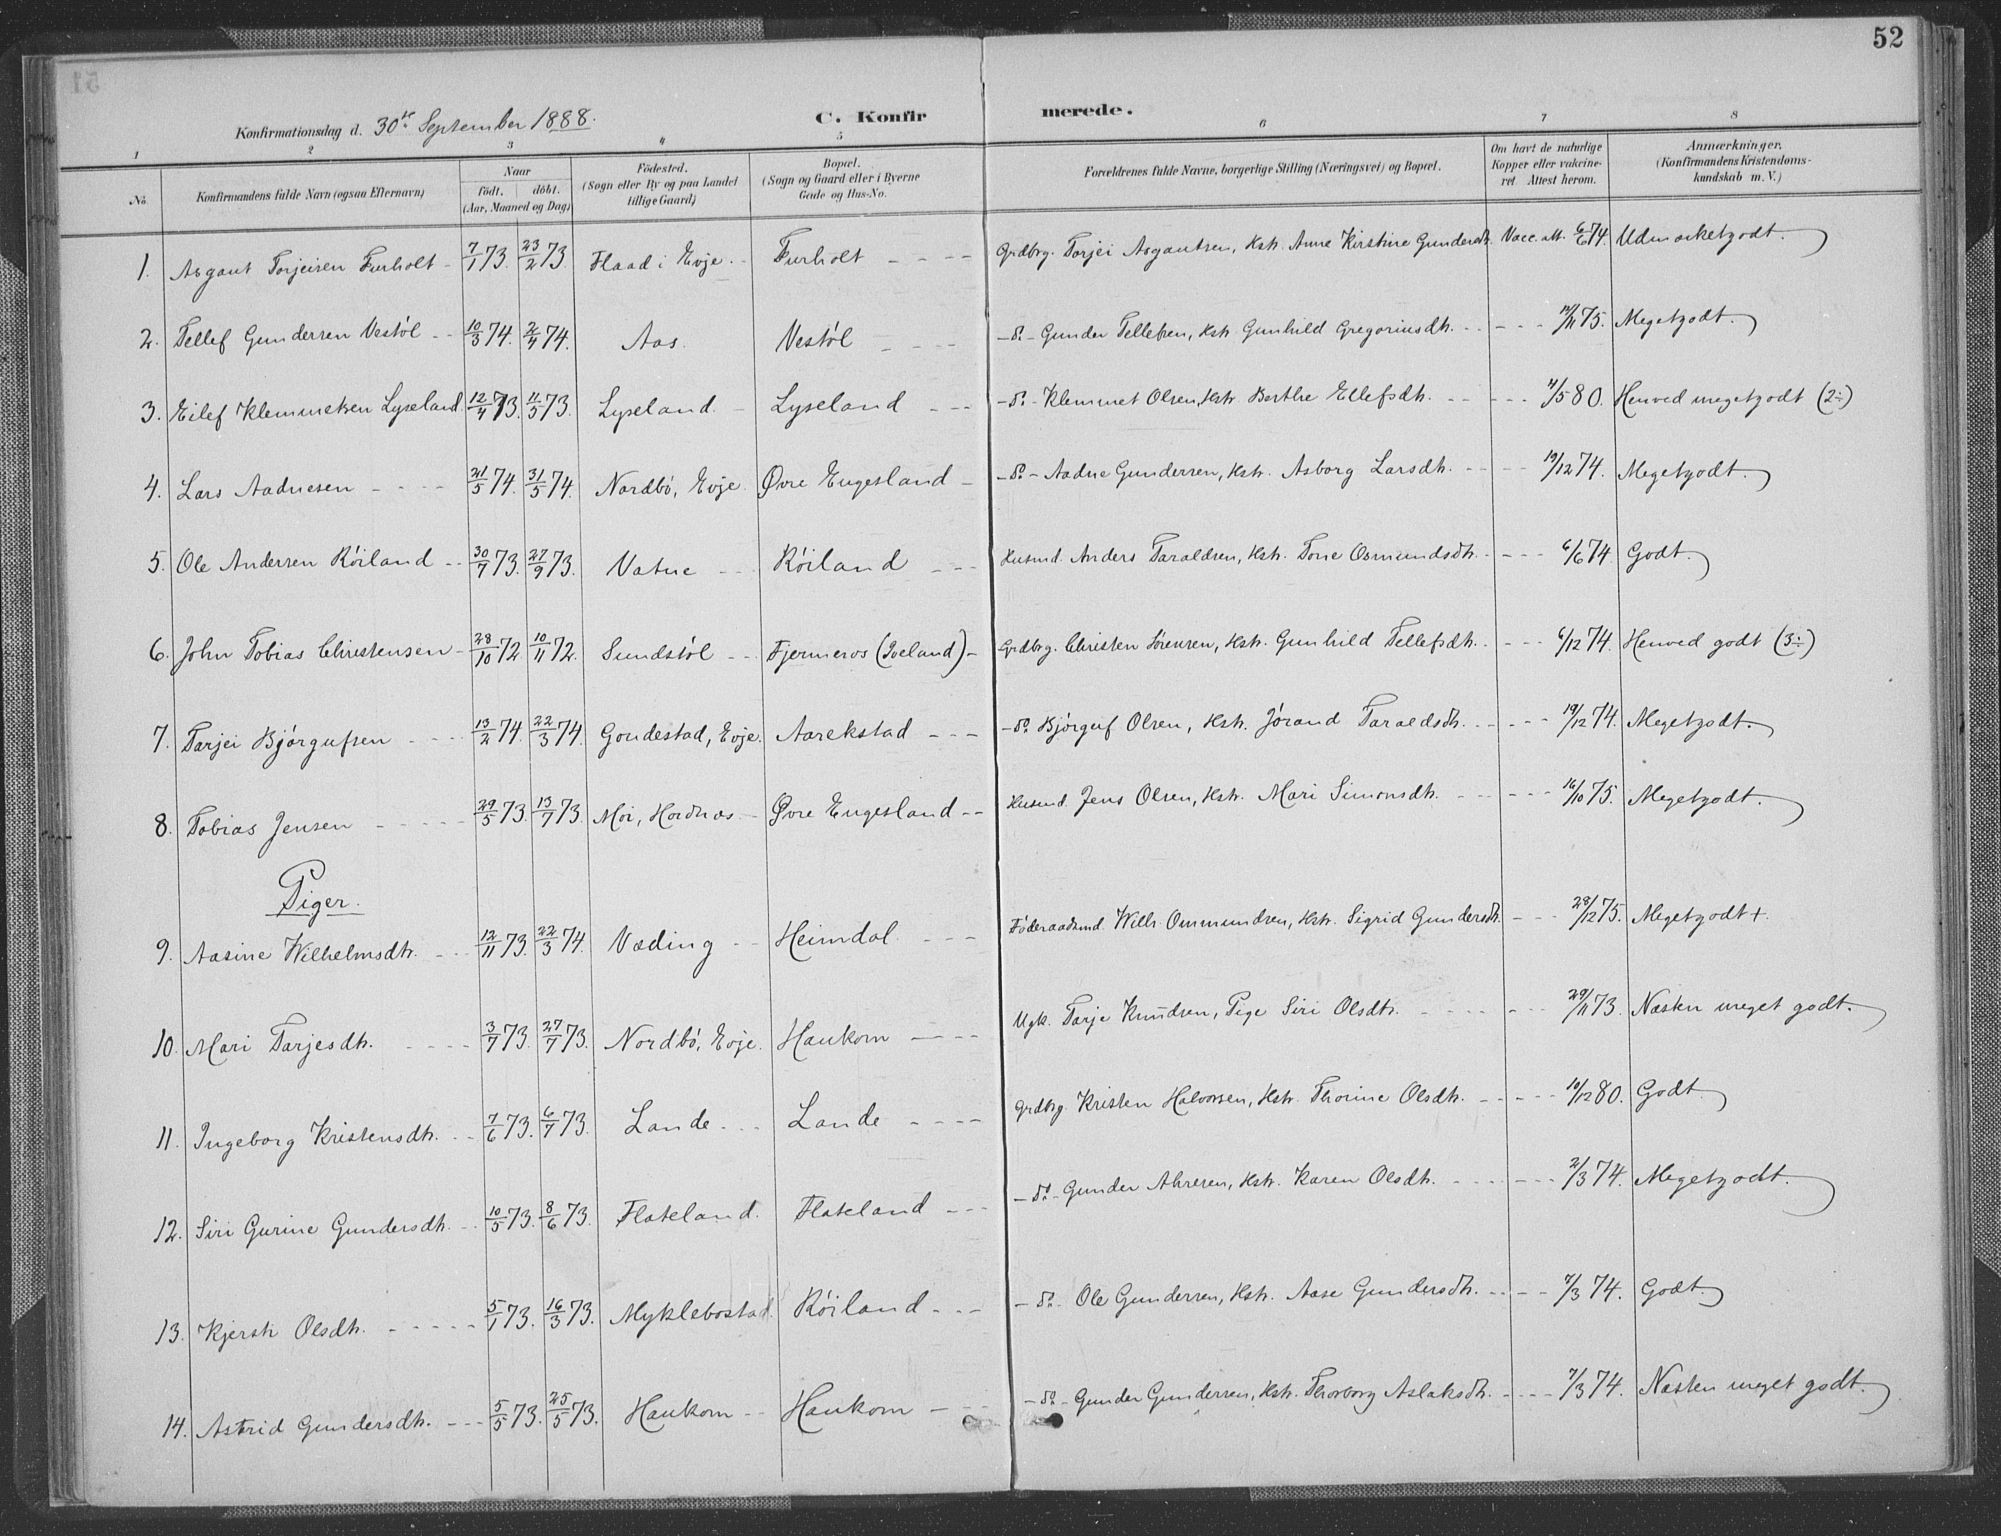 52
Konfirmationsdag d. 30te September 1888.
C. Konfirmerede.
1 2 3 4 5 6 7 8
No Konfirmandens fulde Navn (ogsaa Efternavn) Naar født. døbt. (Aar, Maaned og Dag) Födested. (Sogn eller By og paa Landet tillige Gaard) Bopæl. (Sogn og Gaard eller i Byerne Gade og Hus-No. Forældrenes fulde Navne, borgerlige Stilling (Næringsvei) og Bopæl. Om havt de naturlige Kopper eller vakcineret Attest herom. Anmærkninger. (Konfirmandens Kristendomskundskab m. V.)
1. Asgaut Torjeisen Furholt - 7/1 73. 23/2 73. Flaad i Evje. - Furholt - - - - Grdbrg. Torjei Asgautsen, Kstr. Anne Kirstine Gundersdtr. Vacc. att. 6/6 74. Udmærketgodt.
2. Tellef Gundersen Vestöl - - 10/3 74. 2/4 74. Aas. Vestöl - - - - do - Gunder Tellefsen, Kstr. Gunhild Gregoriusdtr. - - - - - 11/11 75. Megetgodt.
3. Eilef Klemmetsen Lyseland. 12/4 73. 11/5 73. Lyseland. - Lyseland - - - - do - Klemmet Olsen, Kstr. Berthe Ellefsdtr. - - - - - 4/5 80. Henved megetgodt (2÷)
4. Lars Aadnesen - - - - 21/5 74. 31/5 74. Nordbö, Evje. Øvre Engesland - - do - Aadne Gundersen, Kstr. Asborg Larsdtr. - - - - 19/12 74. Megetgodt.
5. Ole Andersen Röiland - - 30/7 73. 27/9 73. Vatne - - Röiland - - - Husmd. Anders Taraldsen, Kstr. Tone Osmundsdtr. - - - - 6/6 74. Godt.
6. John Tobias Christensen - 28/10 72. 10/11 72. Sundstöl - - Fjermeros (Iveland) - Grdbrg. Christen Sörensen, Kstr. Gunhild Tellefsdtr. - - - - 6/12 74. Henved godt (3÷)
7. Tarjei Bjórgufsen - - - - 13/2 74. 22/3 74. Gondestad, Evje. Aarekstad - - - - do Bjórguf Olsen, Kstr. Jórand Taraldsdtr. - - - - - 19/12 74. Megetgodt.
8. Tobias Jensen - - - - - 29/5 73. 13/7 73. Moi, Hordnæs. - Øvre Engesland - - Husmd. Jens Olsen, Kstr. Mari Simonsdtr. - - - - - 16/10 75. Megetgodt.
Piger.
9. Aasine Wilhelmsdtr. - - - 12/11 73. 22/3 74. Væding - - Heimdal. - - - Föderaadsmd. Wilh. Ommundsen, Kstr. Sigrid Gundersdtr. - - - 28/12 75. Megetgodt +.
10. Mari Tarjesdtr. - - - - 3/7 73. 27/7 73. Nordbö, Evje. Haukom - - - Ugk. Tarje Knudsen, Pige Siri Olsdtr. - - - - - - 29/11 73. Næsten meget godt.
11. Ingeborg Kristensdtr. - - 7/6 73. 6/7 73. Lande - - - Lande - - - - Grdbrg. Kristen Halvorsen, Kstr. Thorine Olsdtr. - - - - - 10/12 80. Godt.
12. Siri Gurine Gundersdtr. - - 10/5 73. 8/6 73. Flateland. Flateland - - - - do - Gunder Ahresen, Kstr. Karen Olsdtr. - - - - - - 2/3 74. Megetgodt.
13. Kjersti Olsdtr. - - - - - 5/1 73. 16/3 73. Myklebostad. Röiland - - - - do. Ole Gundersen, Kstr. Aase Gundersdtr. - - - - 7/3 74. Godt.
14. Astrid Gundersdtr. - - - 5/5 73. 25/5 73. Haukom - - Haukom - - - - do - Gunder Gundersen, Kstr. Thorborg Aslaksdtr. - - - - 7/3 74. Næsten meget godt.